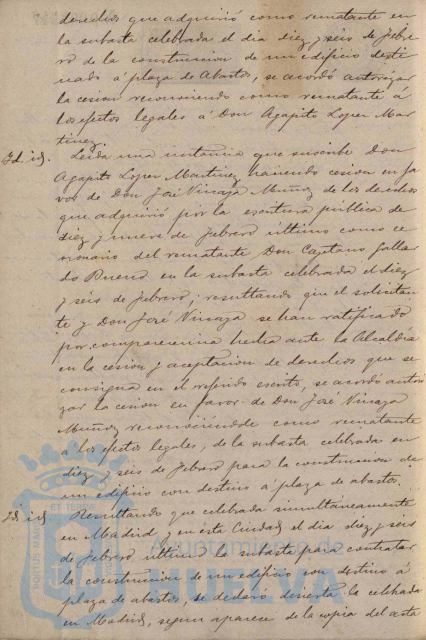 derechos que adquirió como rematante en
la subasta celebrada el día diez y seis de Febre
ro de la construccion de un edificio desti
nado á plaza de Abastos, se acordó autorizar
la cesion reconociendo como rematante á
los efectos legales á Don Agapito Lopez Mar
tinez
Id. id. Leida una instancia que suscribe Don
Agapito Lopez Martinez haciendo cesion en fa
vor de Don José Vinaja Muñoz de los derechos
que adquirió por la escritura pública de
diez y nueve de Febrero último como ce
sionario del rematante Don Cayetano Galla
do Bueno en la subasta celebrada el diez
y seis de Febrero; resultando que el solicitan
te y Don José Vinaja se han ratificado
por comparecencia hecha ante la Alcaldía
en la cesion y aceptacion de derechos que se
consigna en el referido escrito, se acordó autori
zar la cesion en favor de Don José Vinaja
Muñoz reconociendole como rematante
á los efectos legales, de la subasta celebrada en
diez y seis de Febrero para la construccion de
un edificio con destino á plaza de abastos.
Id. id Resultando que celebrada simultáneamente
en Madrid y en ésta Ciudad el día diez y seis
de Febrero último la subasta para contratar
la construccion de un edificio con destino á
plaza de abastos, se declaró desierta la celebrada
en Madrid, segun aparece de la copia del acta
Ayuntamiento de